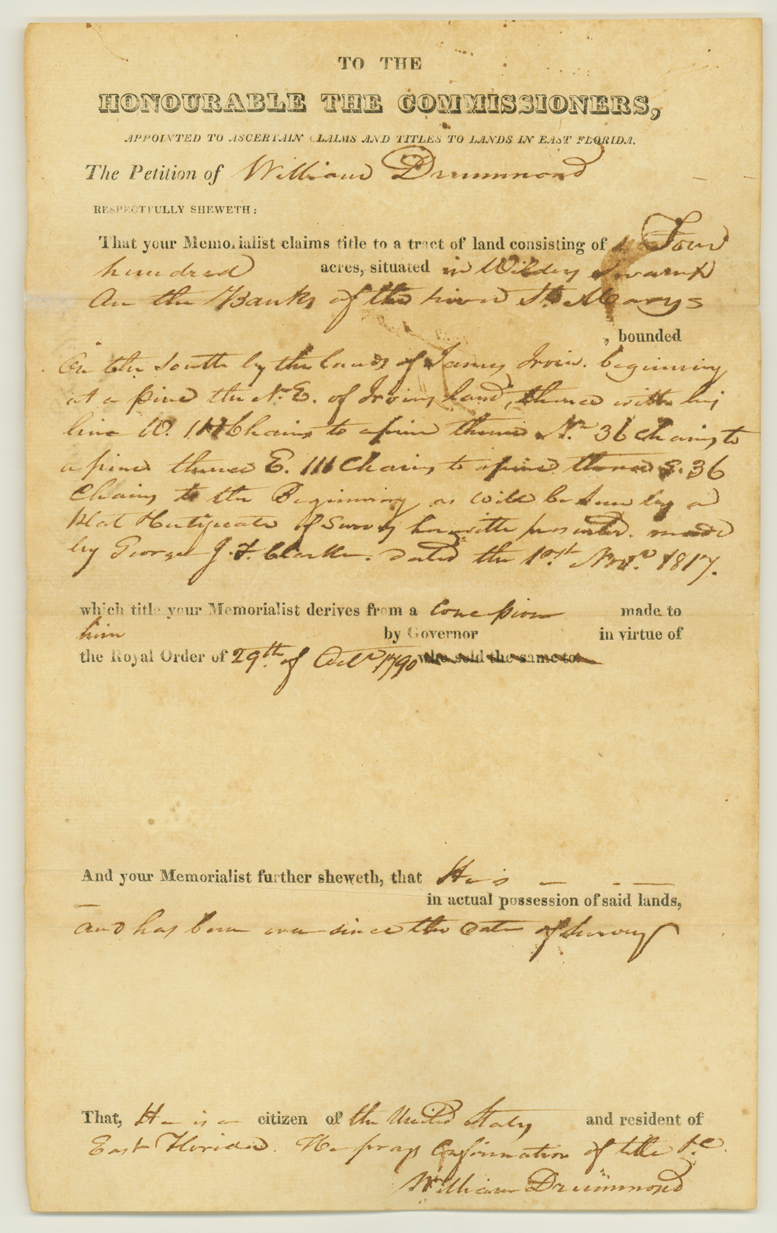 TO THE
HONOURABLE THE COMMISSIONERS,
APPOINTED TO ASCERTAIN CLAIMS AND TITLES TO LANDS IN EAST FLORIDA.
The Petition of William Drummond
RESPECTFULLY SHEWETH:
That your Memorialist claims title to a tract of land consisting of Four
hundred acres, situated in Wilders Swamp
On the Banks of the river St. Marys
, bounded
On the South by the lands of James Irvin. beginning
at a pine the N. E. of Irvins land, thence with his
line W. 111 Chains to a pine thence No. 36 chains to
a pine thence E. 111 Chains to a pine thence S. 36
Chains to the Beginning as will be seen by a
Plat & Certificate of Survey herewith presented. made
by George J. F. Clarke. dated the 1st. Novr. 1817.
which title your Memorialist derives from a Concession made to
him by Governor in virtue of
the Royal Order of 29th. of Octr. 1790 who sold the same to
And your Memorialist further sheweth, that He is
in actual possession of said lands,
and has been ever since the date of Survey
That, He is a citizen of the United States and resident of
East Florida. He prays Confirmation of title &c.
William Drummond